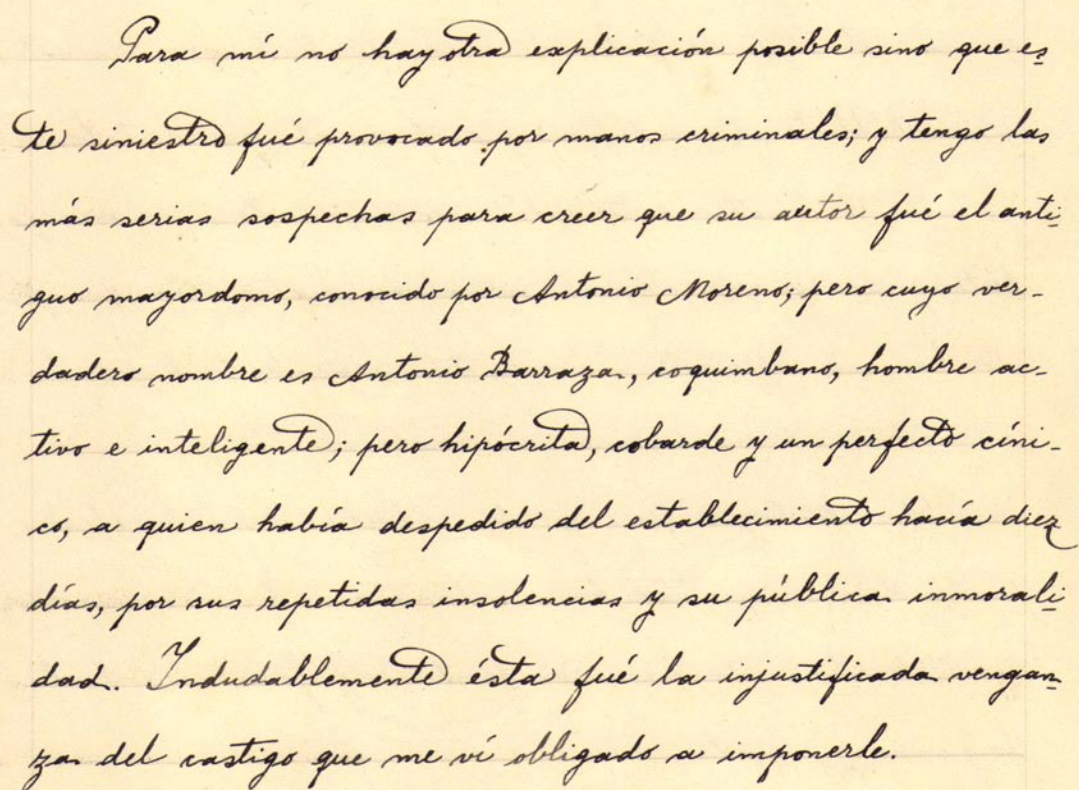 Para mí no hay otra explicación posible sino que es-
te siniestro fué provocado por manos criminales; y tengo las
más serias sospechas para creer que su autor fué el anti-
guo mayordomo, conocido por Antonio Moreno; pero cuyo ver-
dadero nombre es Antonio Barraza, coquimbano, hombre ac-
tivo e inteligente; pero hipócrita, cobarde y un perfecto cíni-
co, a quien había despedido del establecimiento hacía diez
días, por sus repetidas insolencias y su pública inmorali-
dad. Indudablemente ésta fué la injustificada vengan-
za del castigo que me ví obligado a imponerle.